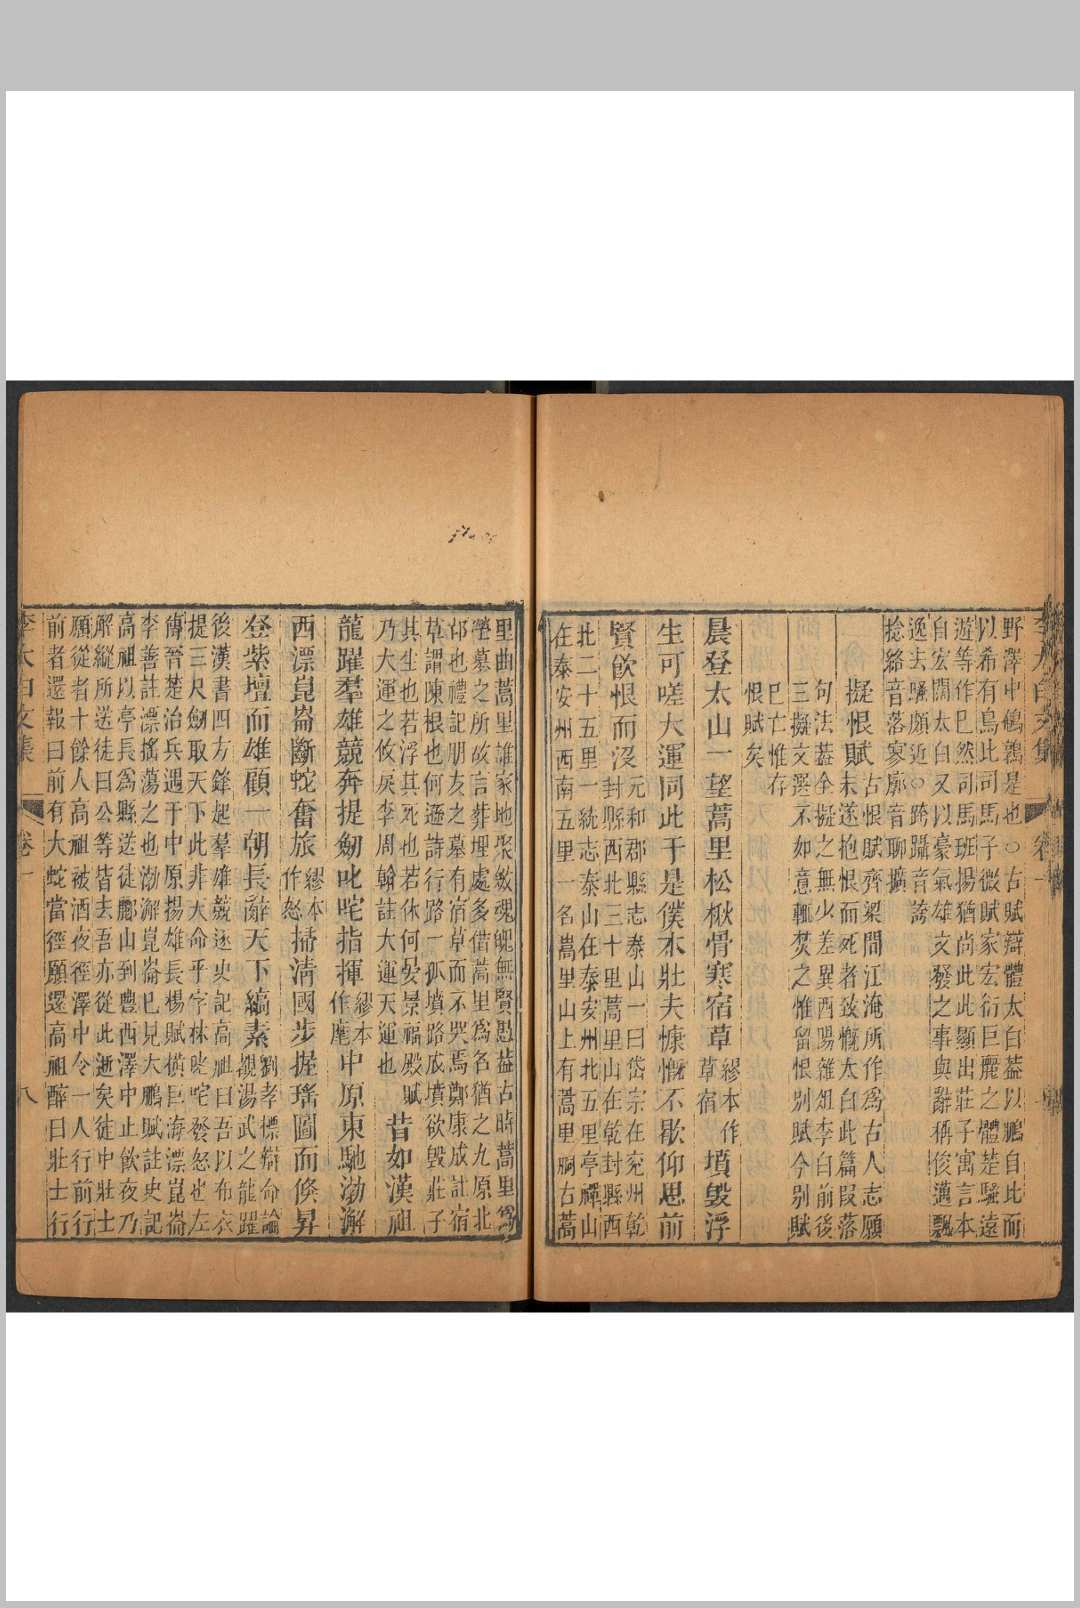 野澤中鵷鶵是也○古賦辯體太白蓋以鵬自比而
以希有鳥比司馬子微賦家宏衍巨麗之體楚騷遠
遊等作已然司馬班揚猶尚此此顯出莊子寓言本
自宏闊太白又以豪氣雄文發之事與辭稱俊邁飄
逸去騷頗近○跨躡音誇
捻絡音落寥廓音聊擴
擬恨賦
古恨賦齊梁間江淹所作爲古人志願
未遂抱恨而死者致慨太白此篇段落
句法蓋全擬之無少差異酉陽雜俎李白前後
三擬文選不如意輒焚之惟留恨別賦今別賦
已亡惟存
恨賦矣
晨登太山一望蒿里松楸骨寒宿草
繆本作
草宿
墳毀浮
生可嗟大運同此于是僕本壯夫慷慨不歇仰思前
賢飲恨而沒
元和郡縣志泰山一曰岱宗在兗州乾
封縣西北三十里蒿里山在乾封縣西
北二十五里一統志泰山在泰安州北五里亭禪山
在泰安州西南五里一名蒿里山上有蒿里祠古蒿
里曲蒿里誰家地聚斂魂魄無賢愚蓋古時蒿里爲
塋墓之所故言葬埋處多借蒿里爲名猶之九原北
邙也禮記朋友之墓有宿草而不哭焉鄭康成註宿
草謂陳根也何遜詩行路一孤墳路成墳欲毀莊子
其生也若浮其死也若休何晏景福殿賦
乃大運之攸戾李周翰註大運天運也
昔如漢祖
龍躍羣雄競奔提劒叱咤指揮
繆本
作麾
中原東馳渤澥
西漂崑崙斷蛇奮旅
繆本
作怒
掃清國步握瑤圖而倏昇
登紫壇而雄顧一朝長辭天下縞素
劉孝標辯命論
觀湯武之龍躍
後漢書四方鋒起羣雄競逐史記高祖曰吾以布衣
提三尺劒取天下此非天命乎字林叱咤發怒也左
傳晉楚治兵遇于中原揚雄長楊賦橫巨海漂崑崙
李善註漂搖蕩之也渤澥崑崙已見大鵬賦註史記
高祖以亭長爲縣送徒酈山到豐西澤中止飲夜乃
解縱所送徒曰公等皆去吾亦從此逝矣徒中壯士
願從者十餘人高祖被酒夜徑澤中令一人行前行
前者還報曰前有大蛇當徑願還高祖醉曰壯士行
李太白文集
卷一
八